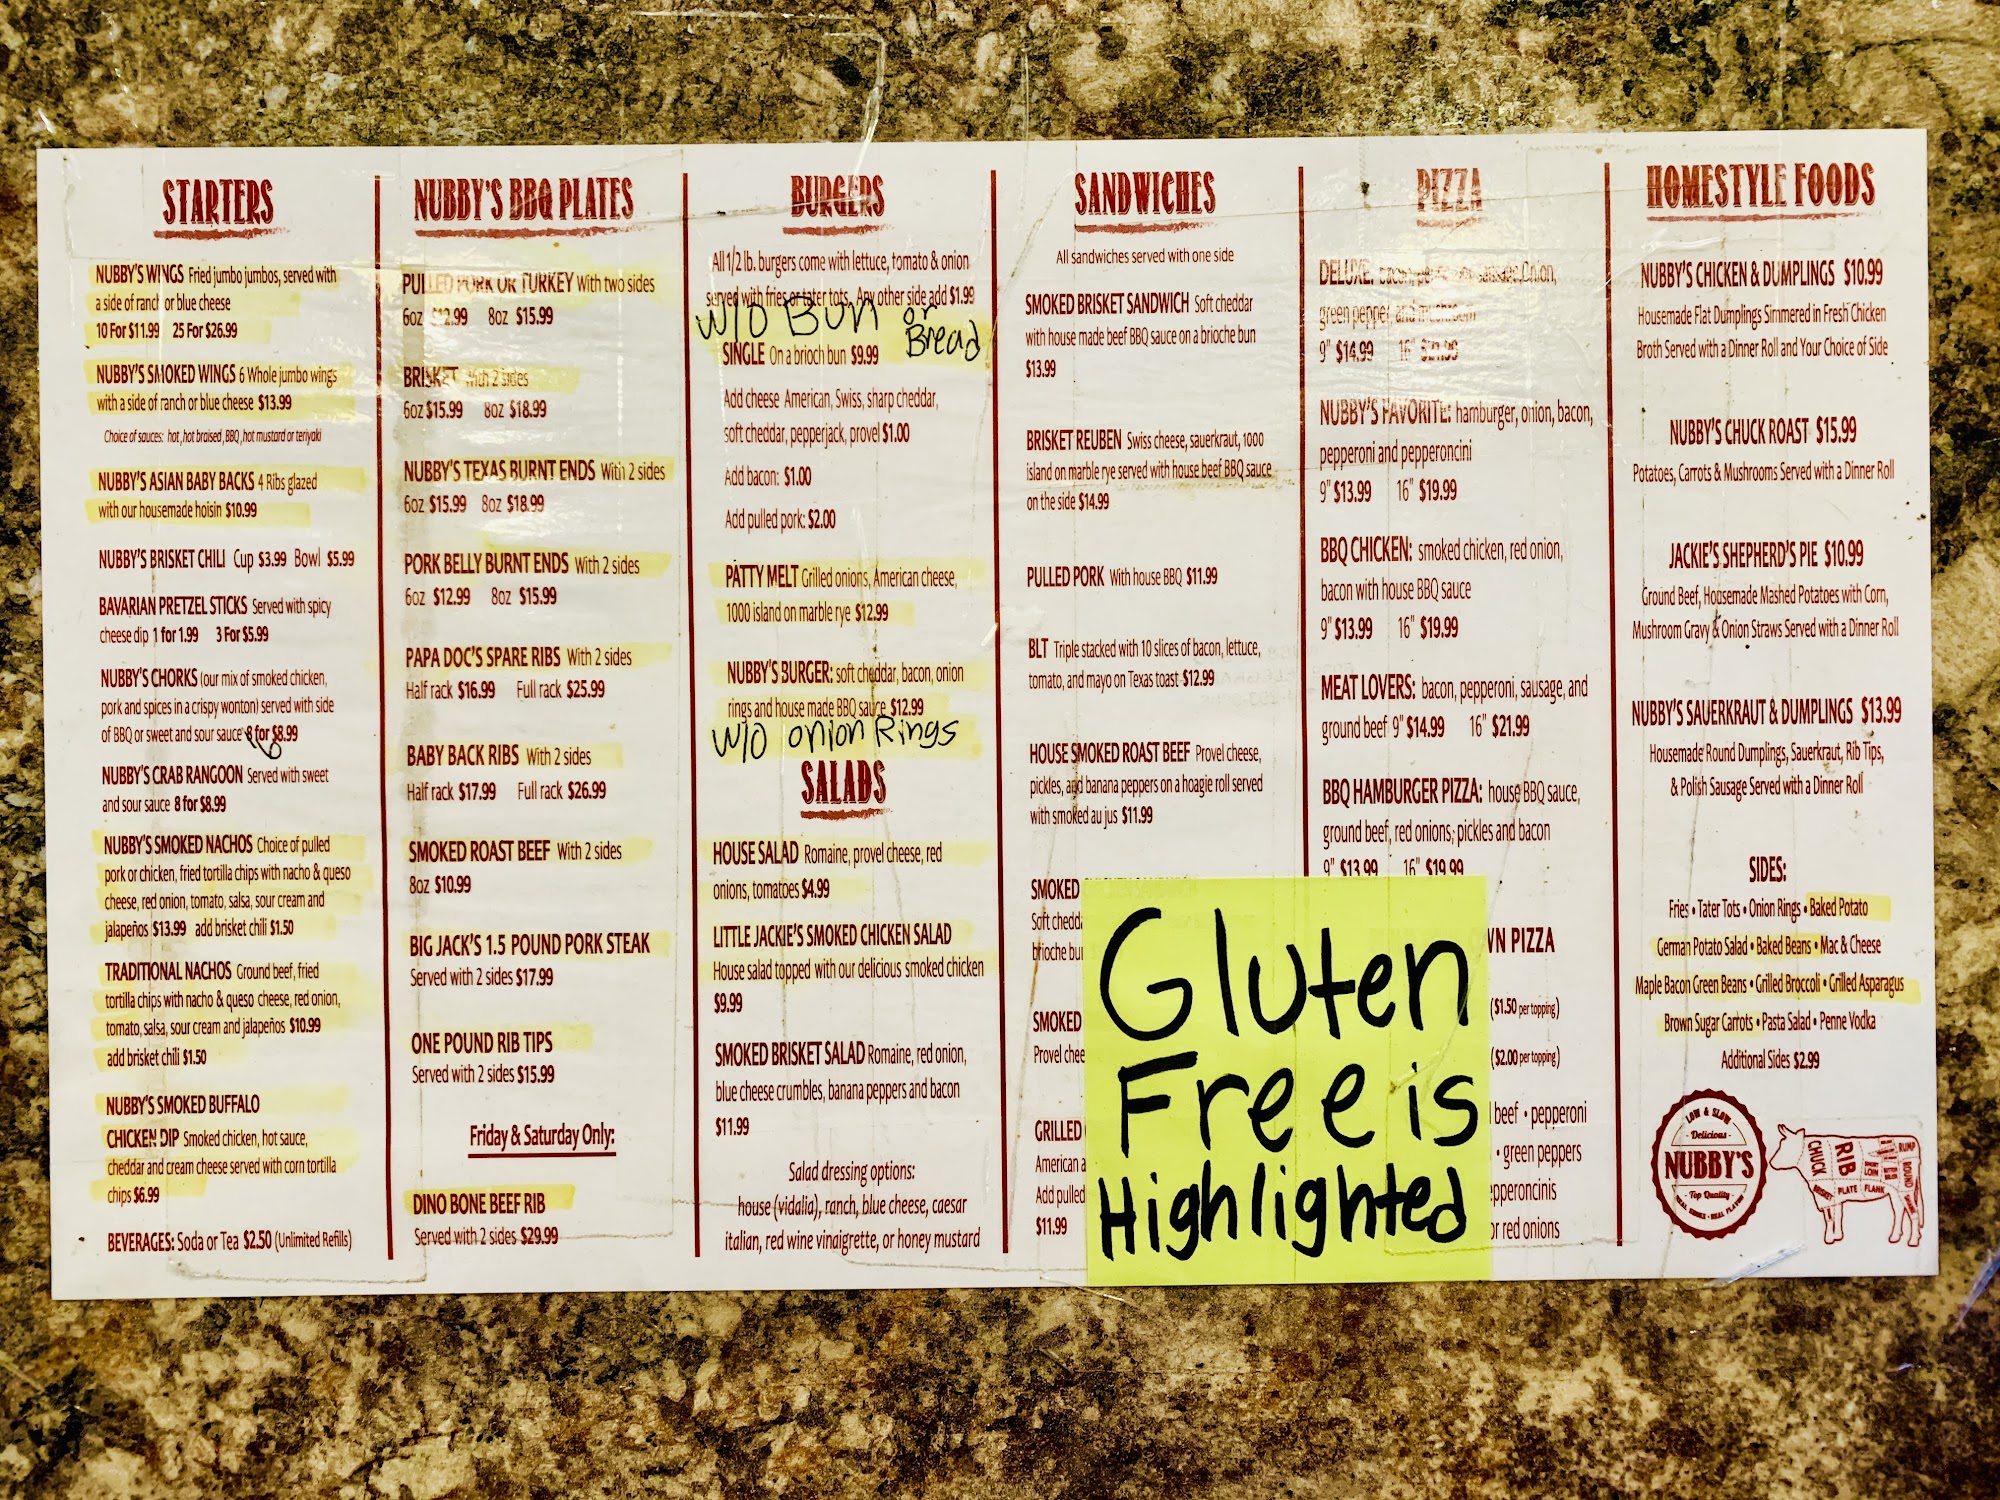 STARTERS
NUBBY'S WINGS Fried jumbo jumbos, served with
a side of ranch or blue cheese
10 For $11.99 25 For $26.99
NUBBY'S SMOKED WINGS 6 Whole jumbo wings
with a side of ranch or blue cheese $13.99
Choice of sauces: hot, hot braised, BBQ, hot mustard or teriyaki
NUBBY'S ASIAN BABY BACKS 4 Ribs glazed
with our housemade hoisin $10.99
NUBBY'S BRISKET CHILI Cup $3.99 Bowl $5.99
BAVARIAN PRETZEL STICKS Served with spicy
cheese dip 1 for 1.99 3 For $5.99
NUBBY'S CHORKS (our mix of smoked chicken,
pork and spices in a crispy wonton) served with side
of BBQ or sweet and sour sauce 8 for $8.99
6
NUBBY'S CRAB RANGOON Served with sweet
and sour sauce 8 for $8.99
NUBBY'S SMOKED NACHOS Choice of pulled
pork or chicken, fried tortilla chips with nacho & queso
cheese, red onion, tomato, salsa, sour cream and
jalapeños $13.99 add brisket chili $1.50
TRADITIONAL NACHOS Ground beef, fried
tortilla chips with nacho & queso cheese, red onion,
tomato, salsa, sour cream and jalapeños $10.99
add brisket chili $1.50
NUBBY'S SMOKED BUFFALO
CHICKEN DIP Smoked chicken, hot sauce,
cheddar and cream cheese served with corn tortilla
chips $6.99
BEVERAGES: Soda or Tea $2.50 (Unlimited Refills)
NUBBY'S BBQ PLATES
PULLED PORK OR TURKEY With two sides
6oz $12.99 8oz $15.99
BRISKET With 2 sides
6oz $15.99 8oz $18.99
NUBBY'S TEXAS BURNT ENDS With 2 sides
6oz $15.99 8oz $18.99
PORK BELLY BURNT ENDS With 2 sides
6oz $12.99 8oz $15.99
PAPA DOC'S SPARE RIBS With 2 sides
Half rack $16.99 Full rack $25.99
BABY BACK RIBS With 2 sides
Half rack $17.99 Full rack $26.99
SMOKED ROAST BEEF With 2 sides
8oz $10.99
BIG JACK'S 1.5 POUND PORK STEAK
Served with 2 sides $17.99
ONE POUND RIB TIPS
Served with 2 sides $15.99
Friday & Saturday Only:
DINO BONE BEEF RIB
Served with 2 sides $29.99
BURGERS
All 1/2 lb. burgers come with lettuce, tomato & onion
served with fries or tater tots. Any other side add $1.99
W/O Bun or
Bread
SINGLE On a brioch bun $9.99
Add cheese American, Swiss, sharp cheddar,
soft cheddar, pepperjack, provel $1.00
Add bacon: $1.00
Add pulled pork: $2.00
PATTY MELT Grilled onions, American cheese,
1000 island on marble rye $12.99
NUBBY'S BURGER: soft cheddar, bacon, onion
rings and house made BBQ sauce $12.99
W/O onion Rings
SALADS
HOUSE SALAD Romaine, provel cheese, red
onions, tomatoes $4.99
LITTLE JACKIE'S SMOKED CHICKEN SALAD
House salad topped with our delicious smoked chicken
$9.99
SMOKED BRISKET SALAD Romaine, red onion,
blue cheese crumbles, banana peppers and bacon
$11.99
Salad dressing options:
house (vidalia), ranch, blue cheese, caesar
italian, red wine vinaigrette, or honey mustard
SANDWICHES
All sandwiches served with one side
SMOKED BRISKET SANDWICH Soft cheddar
with house made beef BBQ sauce on a brioche bun
$13.99
BRISKET REUBEN Swiss cheese, sauerkraut, 1000
island on marble rye served with house beef BBQ sauce
on the side $14.99
PULLED PORK With house BBQ $11.99
BLT Triple stacked with 10 slices of bacon, lettuce,
tomato, and mayo on Texas toast $12.99
HOUSE SMOKED ROAST BEEF Provel cheese,
pickles, and banana peppers on a hoagie roll served
with smoked au jus $11.99
SMOKED
Soft chedda
brioche bu
SMOKED
Provel chee
GRILLED
American a
Add pulled
$11.99
Gluten
Free is
Highlighted
PIZZA
DELUXE: bacon, sausage, Onion,
green pepper, and mushroom
9" $14.99 16" $21.99
NUBBY'S FAVORITE: hamburger, onion, bacon,
pepperoni and pepperoncini
9" $13.99 16" $19.99
BBQ CHICKEN: smoked chicken, red onion,
bacon with house BBQ sauce
9" $13.99 16" $19.99
MEAT LOVERS: bacon, pepperoni, sausage, and
ground beef 9" $14.99 16" $21.99
BBQ HAMBURGER PIZZA: house BBQ sauce,
ground beef, red onions, pickles and bacon
9" $13.99 16" $19.99
VN PIZZA
($1.50 per topping)
($2.00 per topping)
beef • pepperoni
• green peppers
epperoncinis
or red onions
HOMESTYLE FOODS
NUBBY'S CHICKEN & DUMPLINGS $10.99
Housemade Flat Dumplings Simmered in Fresh Chicken
Broth Served with a Dinner Roll and Your Choice of Side
NUBBY'S CHUCK ROAST $15.99
Potatoes, Carrots & Mushrooms Served with a Dinner Roll
JACKIE'S SHEPHERD'S PIE $10.99
Ground Beef, Housemade Mashed Potatoes with Corn,
Mushroom Gravy & Onion Straws Served with a Dinner Roll
NUBBY'S SAUERKRAUT & DUMPLINGS $13.99
Housemade Round Dumplings, Sauerkraut, Rib Tips,
& Polish Sausage Served with a Dinner Roll
SIDES:
Fries • Tater Tots • Onion Rings • Baked Potato
German Potato Salad • Baked Beans • Mac & Cheese
Maple Bacon Green Beans • Grilled Broccoli • Grilled Asparagus
Brown Sugar Carrots • Pasta Salad • Penne Vodka
Additional Sides $2.99
LOW & SLOW
Delicious
NUBBY'S
Top Quality
REAL SMOKE • REAL FLAVOR
CHUCK
RIB
RUMP
ROUND
BRISKET PLATE FLANK